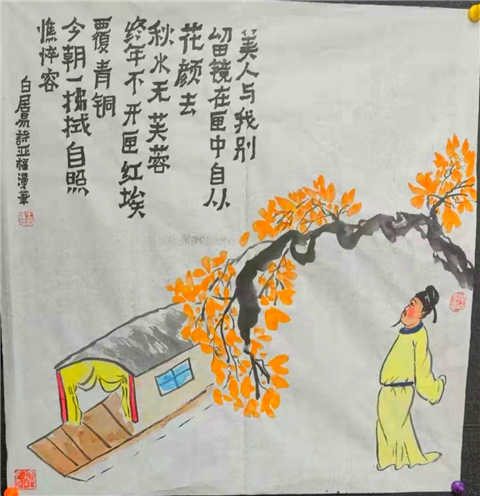 美人与我别
留镜在匣中自从
花颜去
秋水无芙蓉
终年不开匣红埃
覆青铜
今朝一拂拭自照
憔悴容
白居易詩亚福漫筆